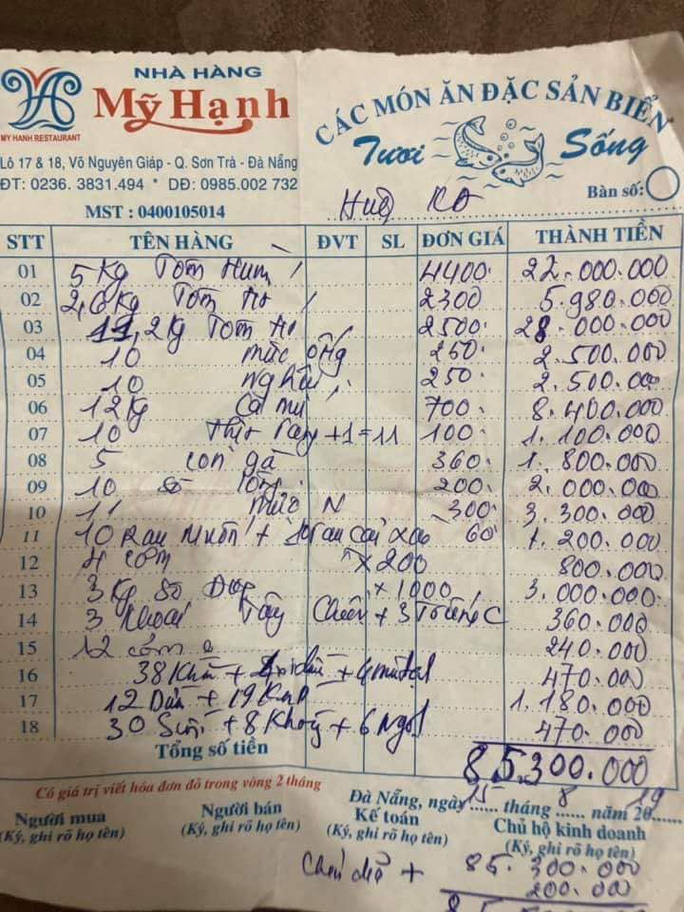 NHÀ HÀNG
Mỹ Hạnh
MY HANH RESTAURANT
CÁC MÓN ĂN ĐẶC SẢN BIỂN
Tươi Sống
Lô 17 & 18, Võ Nguyên Giáp - Q. Sơn Trà - Đà Nẵng
ĐT: 0236. 3831.494 * DĐ: 0985.002 732
Bàn số:
MST : 0400105014
STT TÊN HÀNG ĐVT SL ĐƠN GIÁ THÀNH TIỀN
01 5 Kg Tôm Hùm 4400 22.000.000
02 2,6 Kg Tôm 2300 5.980.000
03 11,2 Kg Tôm 2500 28.000.000
04 10 mực ống 250 2.500.000
05 10 nghêu 250 2.500.000
06 12 Kg Cá mú 700 8.400.000
07 10 +1=11 100 1.100.000
08 5 con gà 360 1.800.000
09 10 sò lông 200 2.000.000
10 11 mực N 300 3.300.000
11 10 Rau Muốn + 10 rau cải xào 60 1.200.000
12 4 cơm x 200 800.000
13 3 Kg Sò x 1000 3.000.000
14 3 Khoai Tây Chiên + 3 Trứng C 360.000
15 12 cơm 240.000
16 38 Khăn + + 4 470.000
17 12 Dừa + 19 Ken 1.180.000
18 30 Suối + 8 + 6 Ngọt 470.000
Tổng số tiền 85.300.000
Có giá trị viết hóa đơn đỏ trong vòng 2 tháng
Đà Nẵng, ngày 15 tháng 8 năm 2019
Người mua
(Ký, ghi rõ họ tên)
Người bán
(Ký, ghi rõ họ tên)
Kế toán
(Ký, ghi rõ họ tên)
Chủ hộ kinh doanh
(Ký, ghi rõ họ tên)
+ 85.300.000
200.000